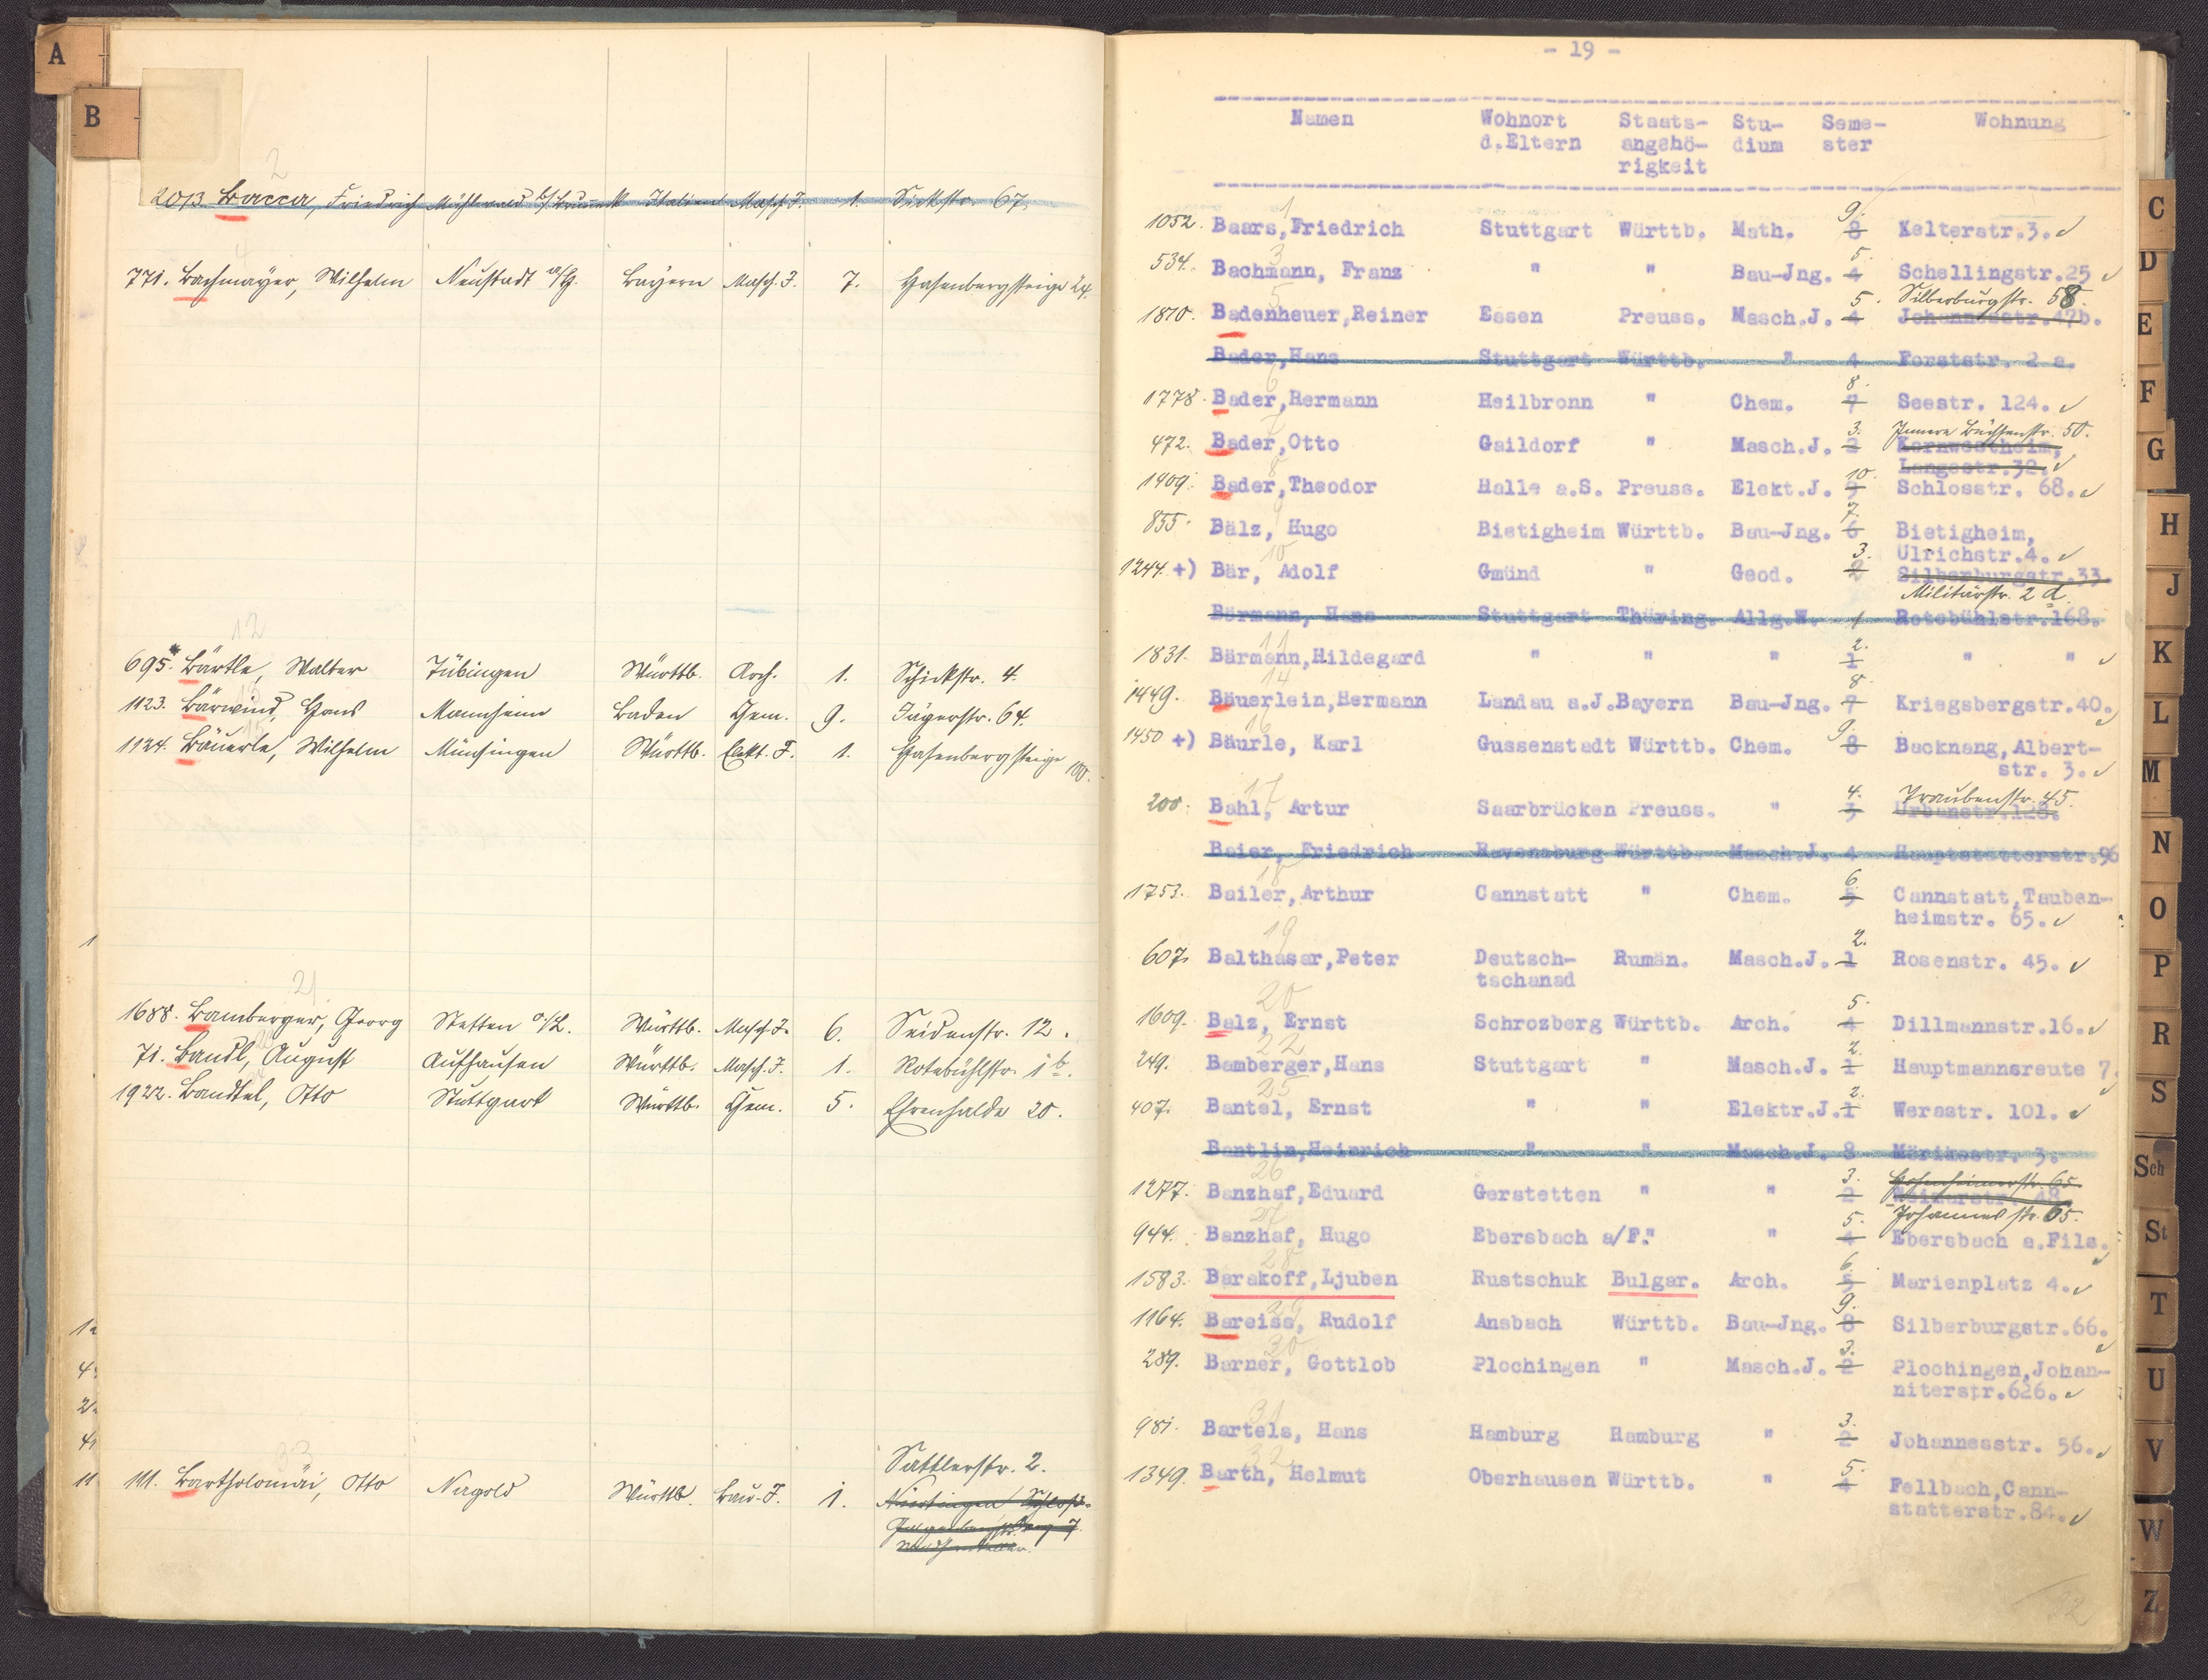 A
B
2
2013. Bacca, Friedrich Mühlwald b/ Italien Masch. J. 1. Sickstr. 67.
4
771. Bachmayer, Wilhelm Neustadt a/H. Bayern Masch. J. 7. Hasenbergsteige 24.
12
695. Bärtle, Walter Tübingen Württb. Arch. 1. Schickstr. 4.
13
1123. Bärwind, Hans Mannheim Baden Chem. 9. Jägerstr. 64.
15
1124. Bäuerle, Wilhelm Münsingen Württb. Elekt. J. 1. Hasenbergsteige 100.
21
1688. Bamberger, Georg Stetten Württb. Masch. J. 6. Seidenstr. 12.
71. Bandl, August Aufhausen Württb. Masch. J. 1. Rotebühlstr. 1b.
1922. Bandtel, Otto Stuttgart Württb. Chem. 5. Ehrenhalde 20.
33
Sattlerstr. 2.
111. Bartholomäi, Otto Nagold Württb. Bau-J. 1. Nürtingen Schloß-
- 19 -
Namen Wohnort Staats- Stu- Seme- Wohnung
d.Eltern angehö- dium ster
rigkeit
1 9.
1052. Baars, Friedrich Stuttgart Württb. Math. 8 Kelterstr.3.
3 5.
534. Bachmann, Franz " " Bau-Jng. 4 Schellingstr.25
5 5. Silberburgstr. 58.
1870. Badenheuer, Reiner Essen Preuss. Masch.J. 4 Johannesstr.47b.
Bader, Hans Stuttgart Württb. " 4 Forststr. 2 a.
6 8.
1778. Bader, Hermann Heilbronn " Chem. 7 Seestr. 124.
7 3. Innere Büchsenstr. 50.
472. Bader, Otto Gaildorf " Masch.J. 2 Kornwestheim,
Langestr.32.
8 10.
1409. Bader, Theodor Halle a.S. Preuss. Elekt.J. 9 Schlosstr. 68.
9 7.
855. Bälz, Hugo Bietigheim Württb. Bau-Jng. 6 Bietigheim,
Ulrichstr.4.
10 3.
1244. +) Bär, Adolf Gmünd " Geod. 2 Silberburgstr.33.
Militärstr. 2 a.
Bärmann, Hans Stuttgart Thüring. Allg.W. 1 Rotebühlstr.168.
11 2.
1831. Bärmann, Hildegard " " " 1 " "
14 8.
1449. Bäuerlein, Hermann Landau a.J. Bayern Bau-Jng. 7 Kriegsbergstr.40.
16 9.
1450 +) Bäurle, Karl Gussenstadt Württb. Chem. 8 Backnang, Albert-
str. 3.
17 4. Traubenstr. 45.
200. Bahl, Artur Saarbrücken Preuss. " 3 Urbanstr.128.
Baier, Friedrich Ravensburg Württb. Masch.J. 4 Hauptstätterstr.96
18 6.
1753. Bailer, Arthur Cannstatt " Chem. 5 Cannstatt, Tauben-
heimstr. 65.
19 2.
607. Balthasar, Peter Deutsch- Rumän. Masch.J. 1 Rosenstr. 45.
tschanad
20 5.
1609. Balz, Ernst Schrozberg Württb. Arch. 4 Dillmannstr.16.
22 2.
249. Bamberger, Hans Stuttgart " Masch.J. 1 Hauptmannsreute 7.
25 2.
407. Bantel, Ernst " " Elektr.J. 1 Werastr. 101.
Bantlin, Heinrich " " Masch.J. 8 Mörikestr. 3.
26 3. Hohenheimerstr. 65.
1277. Banzhaf, Eduard Gerstetten " " 2 48.
27 5. Johannesstr. 65.
944. Banzhaf, Hugo Ebersbach a/F. " " 4 Ebersbach a.Fils.
28 6.
1583. Barakoff, Ljuben Rustschuk Bulgar. Arch. 5 Marienplatz 4.
29 9.
1164. Bareiss, Rudolf Ansbach Württb. Bau-Jng. 8 Silberburgstr.66.
30 3.
289. Barner, Gottlob Plochingen " Masch.J. 2 Plochingen, Johan-
niterstr.626.
31 3.
981. Bartels, Hans Hamburg Hamburg " 2 Johannesstr. 56.
32 5.
1349. Barth, Helmut Oberhausen Württb. " 4 Fellbach, Cann-
statterstr.84.
C
D
E
F
G
H
J
K
L
M
N
O
P
R
S
Sch
St
T
U
V
W
Z